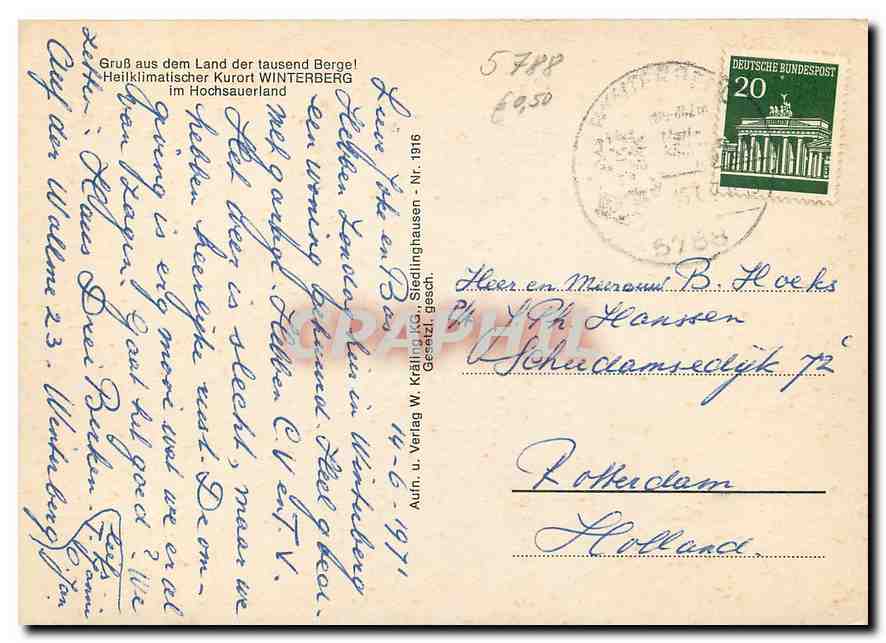 Gruß aus dem Land der tausend Berge!
Heilklimatischer Kurort WINTERBERG
im Hochsauerland
14-6-1971
Lieve Joke en Bas
Hebben Zonda hier in Winterberg
een woning gehuurd. Heel goed-
met garage. Hebben C.V en T.V.
Het weer is slecht, maar we
hebben heerlijke rust. De om-
geving is erg mooi wat we er al
van zagen. Gaat het goed? We
zitten: Haus Drei Birken.
Auf der Wallme 23 - Winterberg
Liefs
Jan
Aufn. u. Verlag W. Kräling KG., Siedlinghausen - Nr. 1916
Gesetzl. gesch.
5788
€0,50
DEUTSCHE BUNDESPOST
20
WINTERBERG
5788
Heer en Mevrouw B. Hoeks
J. Ph. Hanssen
Schiedamsedijk 72c
Rotterdam
Holland.
CRAPHIL